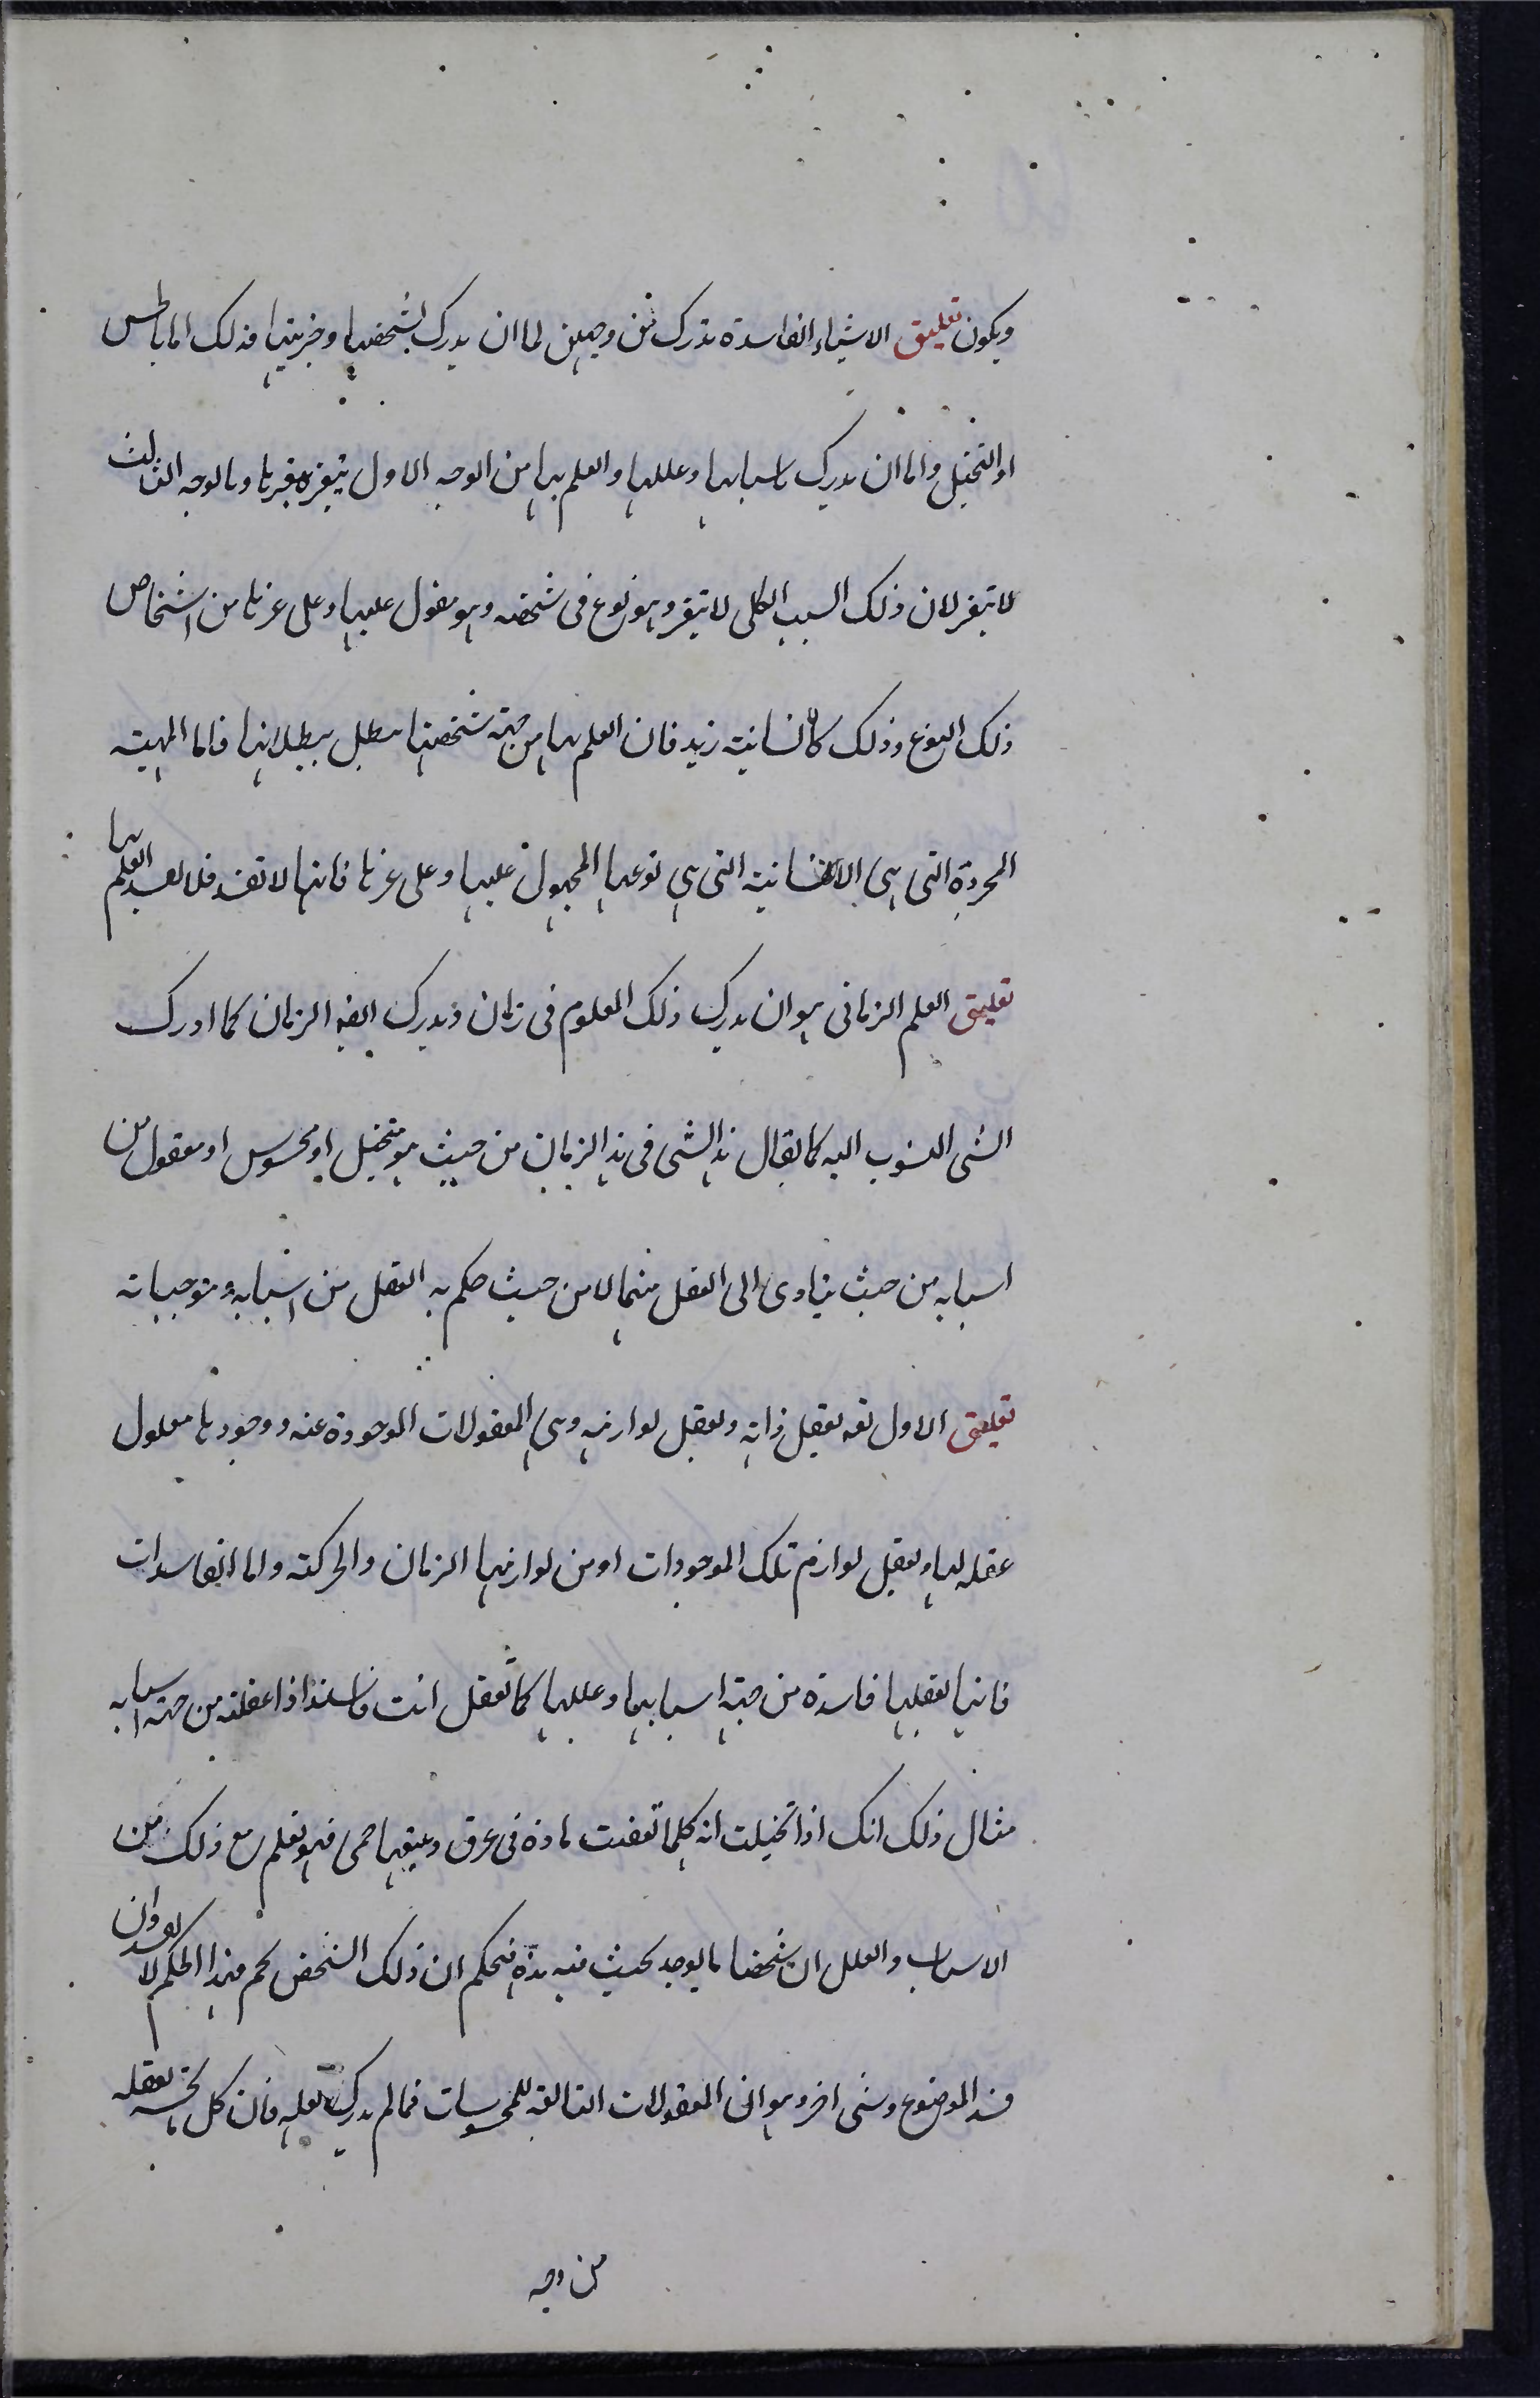 ويكون تعليق الاشياء الفاسدة تدرك من وجهين اما ان يدرك بشخصها وجزئيتها فذلك اما بالحس
او التخيل واما ان يدرك باسبابها وعللها والعلم بها من الوجه الاول يتغير بتغيرها وبالوجه الثالث
لا يتغير لان ذلك السبب الكلى لا يتغير وهو نوع فى شخصه وهو مقول عليها وعلى غيرها من اشخاص
ذلك النوع وذلك كالانسانية زيد فان العلم بها من جهة شخصيتها يبطل ببطلانها فاما المهية
المجردة التى هى الانسانية التى هى نوعها المحمول عليها وعلى غيرها فانها لا تفسد فلا يفسد العلم بها
تعليق العلم الزمانى هو ان يدرك ذلك المعلوم فى زمان ويدرك ايضا الزمان كما ادرك
الشى المنسوب اليه كما يقال هذا الشى فى هذا الزمان من حيث هو متخيل او محسوس او معقول من
اسبابه من حيث يتادى الى العقل منها لا من حيث حكم به العقل من اسبابه وموجباته
تعليق الاول تعه يعقل ذاته ويعقل لوازمه وهى المعقولات الموجودة عنه ووجودها معلول
عقله لها ويعقل لوازم تلك الموجودات او من لوازمها الزمان والحركة واما الفاسدات
فانها يعقلها فاسدة من جهة اسبابها وعللها كما تعقل انت فاسدا اذا عقلته من جهة اسبابه
مثال ذلك انك اذا تخيلت انه كلما تعفنت مادة فى عرق ويتبعها حمى فهو يعلم مع ذلك من
الاسباب والعلل ان شخصا ما يوجد بحيث فيه هذه فيحكم ان ذلك الشخص يحم فهذا الحكم لا يفسد وان
فسد الموضوع وشى اخر وهو ان المعقولات التابعة للمحسوسات فما لم يدرك بعلية فان كل ما يحسه يعقله
من وجه